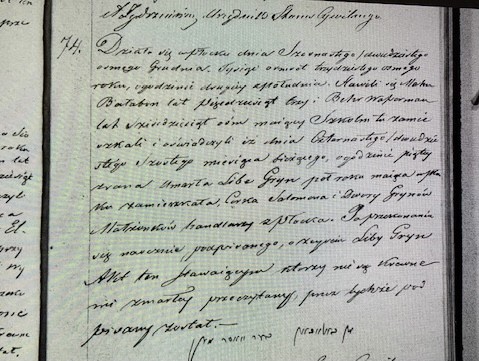 Urzędnik Stanu Cywilnego
74. Działo się w Płocku dnia Szesnastego/dwudziestego
osmego Grudnia, Tysiąc ośmset trzydziestego osmego
roku, o godzinie drugiey z południa. Stawili się
lat pięćdziesiąt trzy i Behr
lat sześćdziesiąt ośm maiący Szkolni tu zamie-
szkali i oświadczyli iż dnia Czternastego/dwudzie-
stego szóstego miesiąca bieżącego, o godzinie piątey
zrana umarła Libe Gryn pół roku maiąca w Pło-
cku zamieszkała, Córka Salomona i Dwory Grynów
Małżonków handlarzy z Płocka. Po przekonaniu
się naocznie podpisanego, o zeyściu Liby Gryn
Akt ten stawaiącym którzy nie są krewne-
mi zmarłey przeczytany, przez tychże pod-
pisany został. —